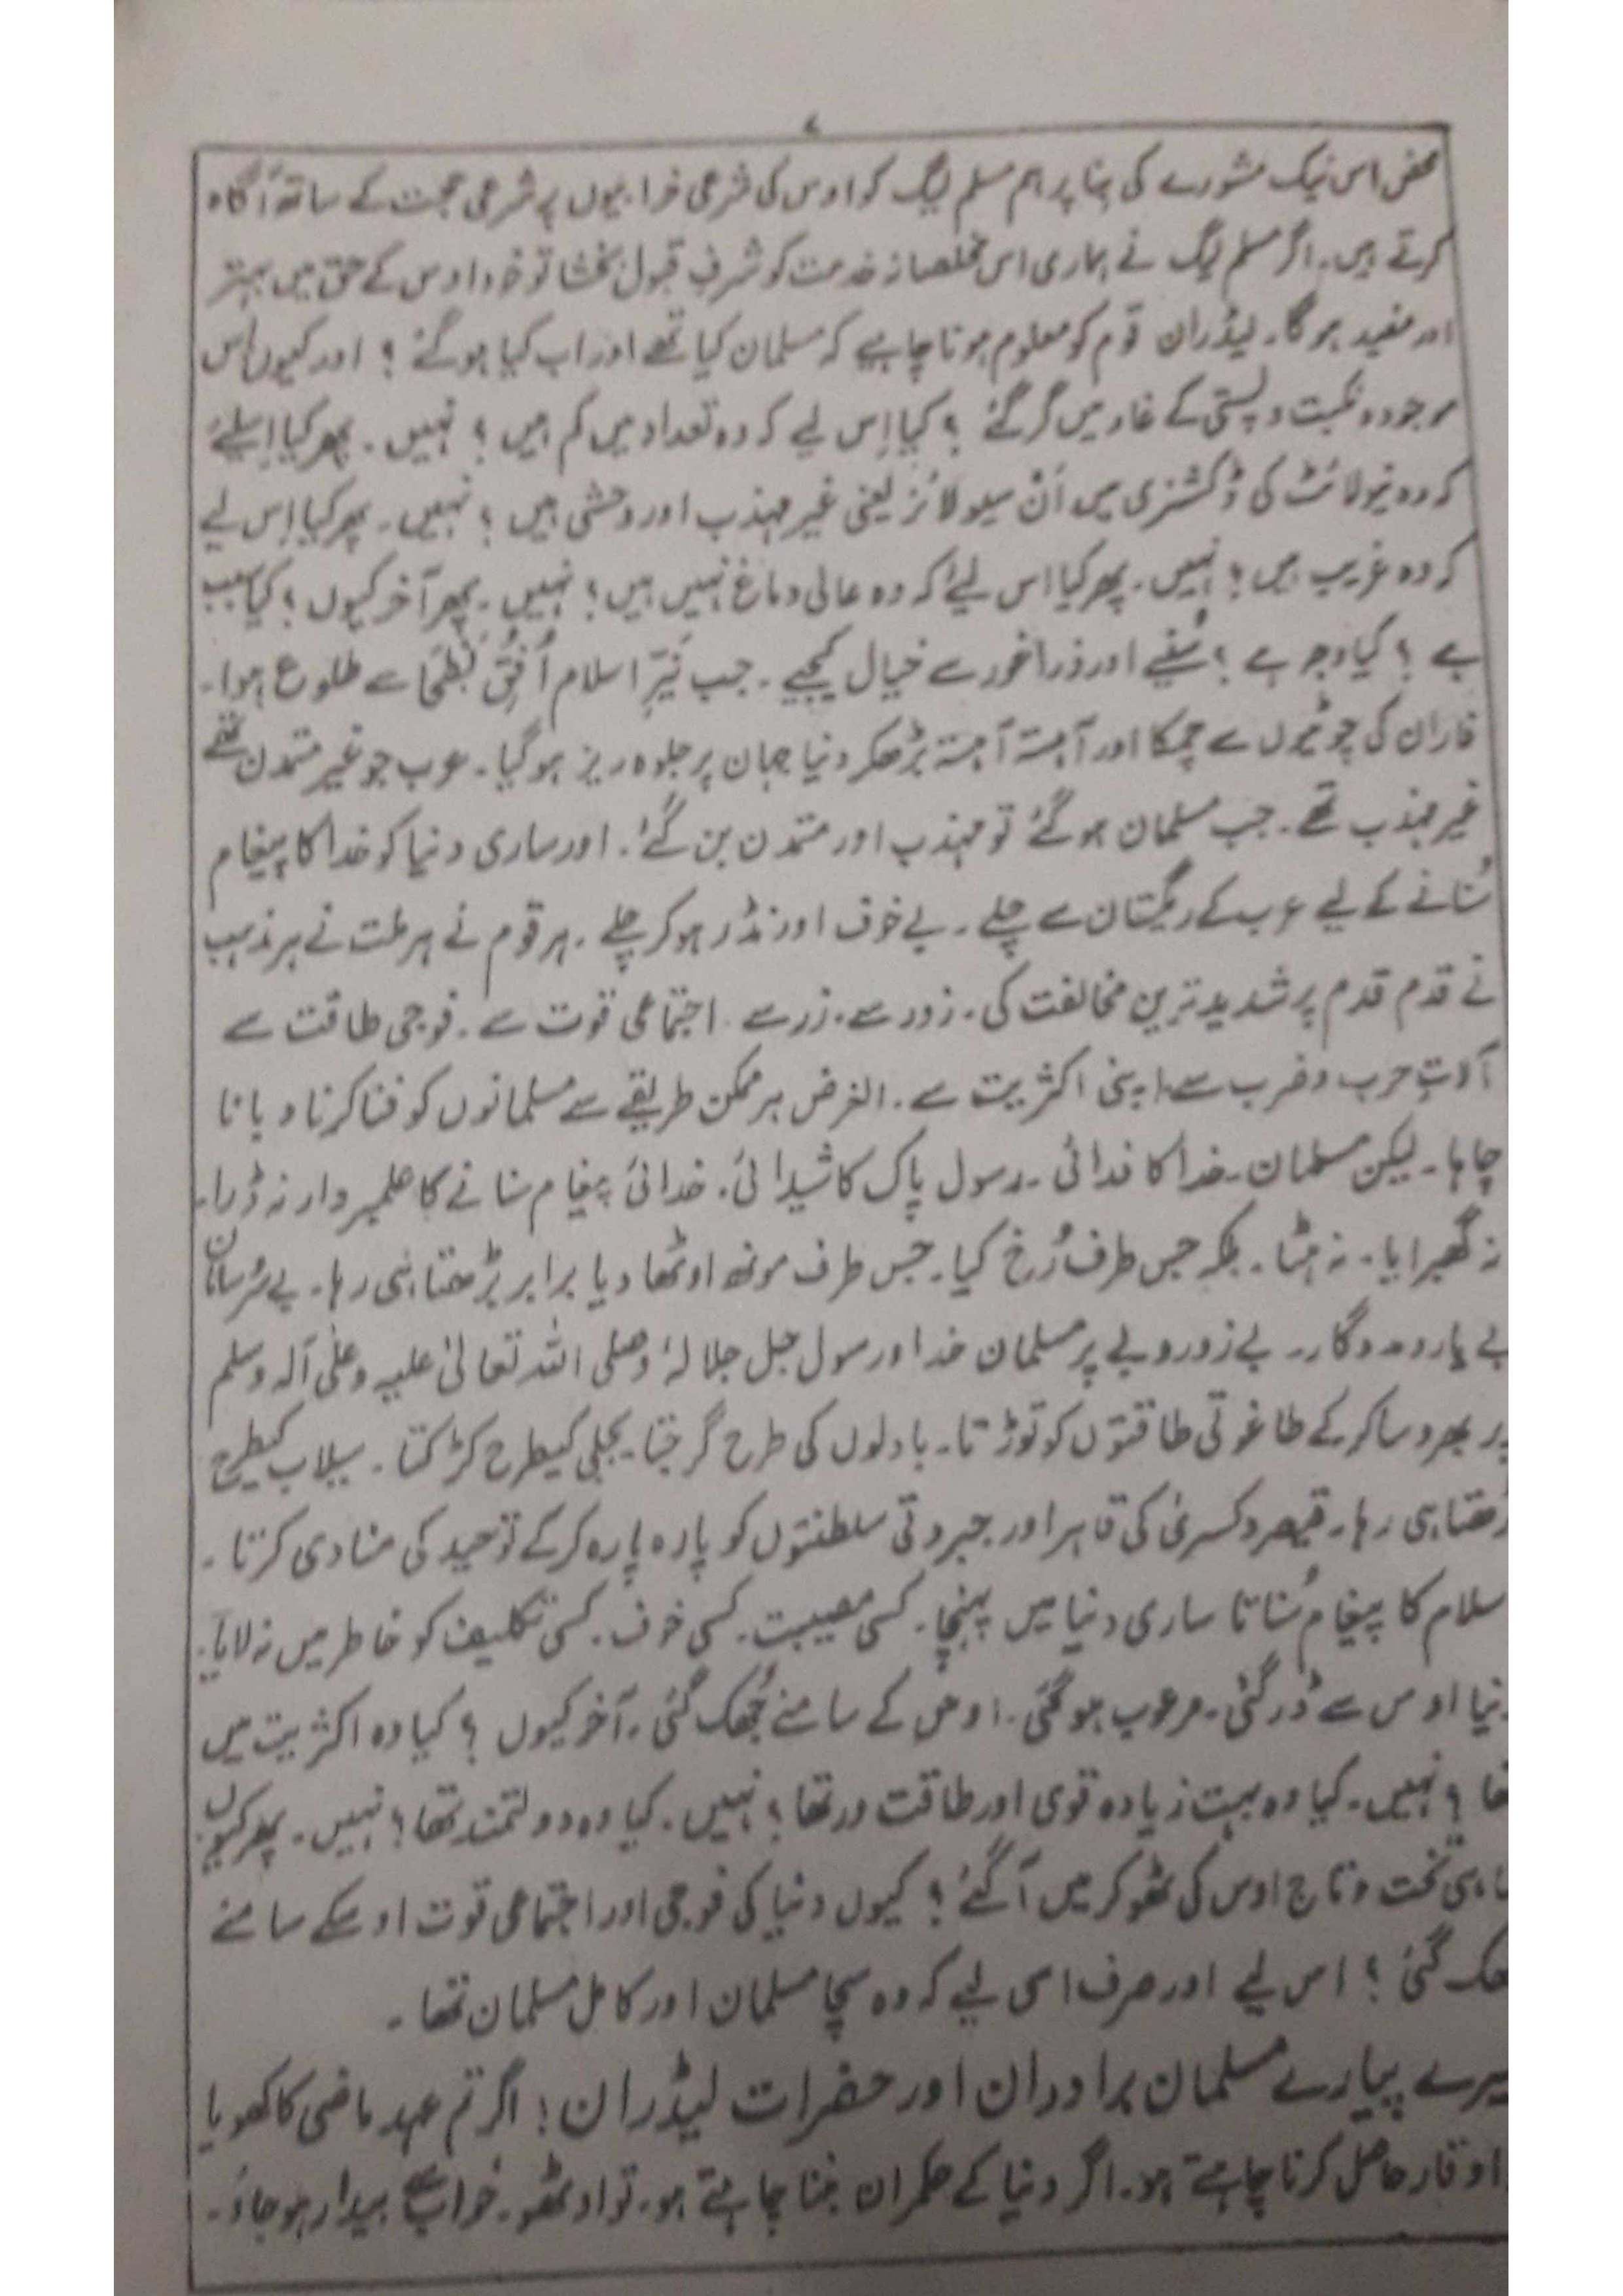 محض اس نیک مشورے کی بنا پر ہم مسلم لیگ کو اوس کی شرعی خرابیوں پر شرعی حجت کے ساتھ آگاہ
کرتے ہیں۔ اگر مسلم لیگ نے ہماری اس مخلصانہ خدمت کو شرفِ قبول بخشا تو خود اوس کے حق میں بہتر
اور مفید ہوگا۔ لیڈران قوم کو معلوم ہونا چاہیے کہ مسلمان کیا تھے اور اب کیا ہوگئے ؟ اور کیوں اس
موجودہ نکبت و پستی کے غار میں گر گئے ؟ کیا اِس لیے کہ وہ تعداد میں کم ہیں ؟ نہیں ۔ پھر کیا اِسلئے
کہ وہ نیولائٹ کی ڈکشنری میں اَن سیولائزڈ یعنی غیر مہذب اور وحشی ہیں ؟ نہیں ۔ پھر کیا اِس لیے
کہ وہ غریب ہیں ؟ نہیں ۔ پھر کیا اس لیئے کہ وہ عالی دماغ نہیں ہیں ؟ نہیں ۔ پھر آخر کیوں ؟ کیا سبب
ہے ؟ کیا وجہ ہے ؟ سُنیے اور ذرا غور سے خیال کیجیے ۔ جب نَیّرِ اسلام اُفُقِ بَطحَا سے طلوع ہوا۔
فاران کی چوٹیوں سے چمکا اور آہستہ آہستہ بڑھکر دنیا جہان پر جلوہ ریز ہوگیا ۔ عرب جو غیر متمدن تھے
غیر مہذب تھے ۔ جب مسلمان ہوگئے تو مہذب اور متمدن بن گئے ۔ اور ساری دنیا کو خدا کا پیغام
سُنانے کے لیے عرب کے ریگستان سے چلے ۔ بے خوف اور نڈر ہو کر چلے ۔ ہر قوم نے ہر ملت نے ہر مذہب
نے قدم قدم پر شدید ترین مخالفت کی ۔ زور سے ۔ زر سے ۔ اجتماعی قوت سے ۔ فوجی طاقت سے
آلاتِ حرب و ضرب سے ۔ اپنی اکثریت سے ۔ الغرض ہر ممکن طریقے سے مسلمانوں کو فنا کرنا دبانا
چاہا۔ لیکن مسلمان ۔ خدا کا فدائی ۔ رسول پاک کا شیدائی ۔ خدائی پیغام سنانے کا علمبردار نہ ڈرا۔
نہ گھبرایا ۔ نہ ہٹا ۔ بلکہ جس طرف رُخ کیا ۔ جس طرف مونھ اوٹھا دیا برابر بڑھتا ہی رہا ۔ بے سروسامان
بے یارومددگار ۔ بے زور و بے پر مسلمان خدا و رسول جل جلالہٗ وصلی اللہ تعالیٰ علیہ وعلیٰ آلہ وسلم
پر بھروسا کرکے طاغوتی طاقتوں کو توڑتا ۔ بادلوں کی طرح گرجتا ۔ بجلی کیطرح کڑکتا ۔ سیلاب کیطرح
بڑھتا ہی رہا ۔ قیصر و کسریٰ کی قاہر اور جبروتی سلطنتوں کو پارہ پارہ کرکے توحید کی منادی کرتا ۔
سلام کا پیغام سُناتا ساری دنیا میں پہنچا ۔ کسی مصیبت ۔ کسی خوف ۔ کسی تکلیف کو خاطر میں نہ لایا۔
نیا اوس سے ڈر گئی ۔ مرعوب ہوگئی ۔ اوس کے سامنے جُھک گئی ۔ آخر کیوں ؟ کیا وہ اکثریت میں
تھا ؟ نہیں ۔ کیا وہ بہت زیادہ قوی اور طاقت ور تھا ؟ نہیں ۔ کیا وہ دولتمند تھا ؟ نہیں ۔ پھر کیوں
ہی تخت و تاج اوس کی ٹھوکر میں آگئے ؟ کیوں دنیا کی فوجی اور اجتماعی قوت اوسکے سامنے
جھک گئی ؟ اس لیے اور صرف اسی لیے کہ وہ سچا مسلمان اور کامل مسلمان تھا ۔
میرے پیارے مسلمان برادران اور حضرات لیڈران ! اگر تم عہد ماضی کا کھویا
وقار حاصل کرنا چاہتے ہو ۔ اگر دنیا کے حکمران بننا چاہتے ہو ۔ تو اوٹھو ۔ خواب سے بیدار ہو جاؤ ۔